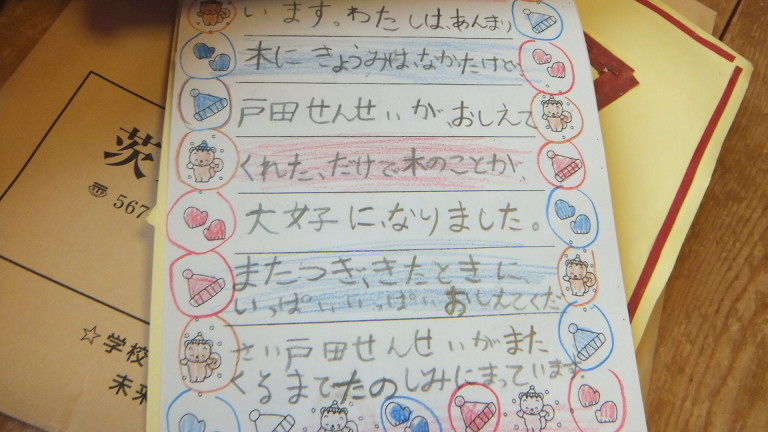 います。わたしは、あんまり
木にきょうみは、なかたけど、
戸田せんせいが、おしえて
くれた、だけで木のことが、
大好に、なりました。
またつぎ、きたときに、
いっぱいいっぱいおしえてくだ
さい戸田せんせいがまた
くるまでたのしみにまっています。
茨
567
☆学校
未来